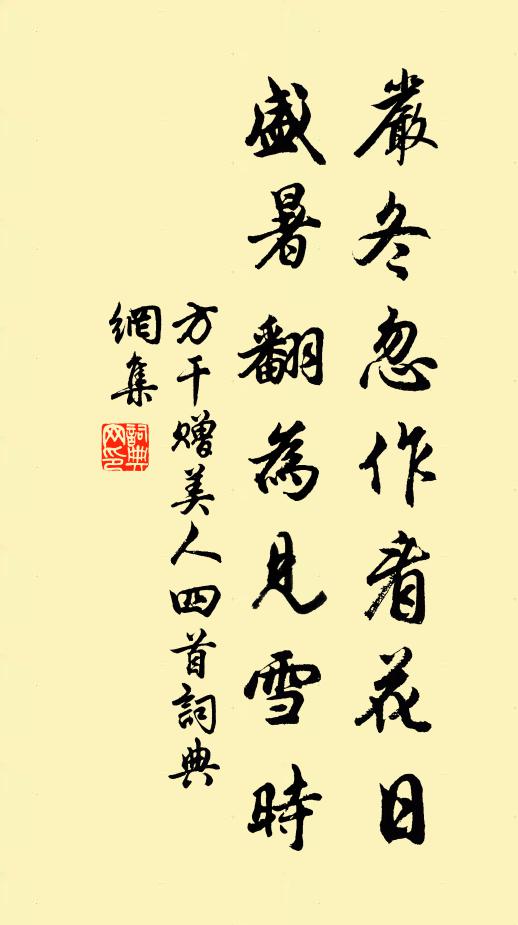 嚴冬忽作看花日
盛暑翻為見雪時
方干贈美人四首詞典
網集
詞典
网印